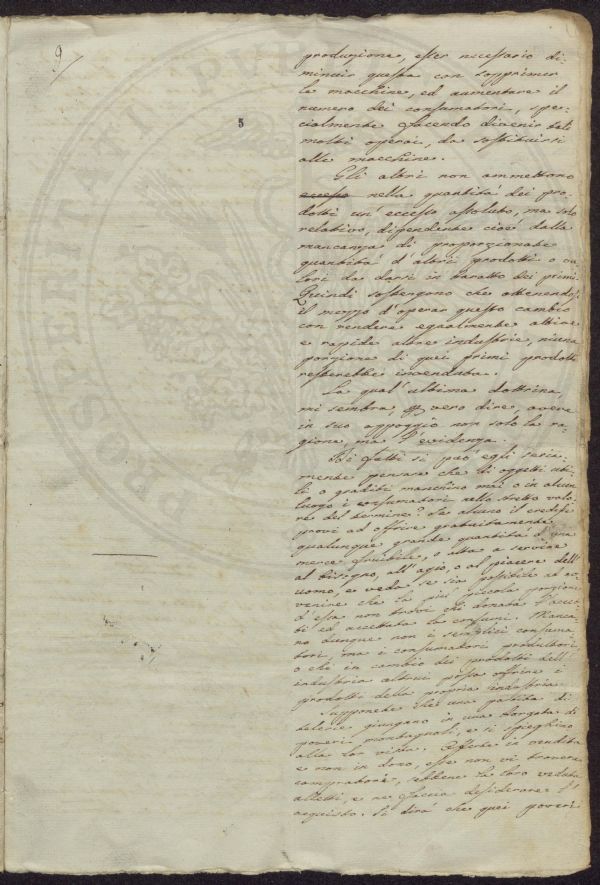 9
5
produzione, esser necessario di-
minuir questa con sopprimer
le macchine, ed aumentare il
numero dei consumatori, spe-
cialmente facendo divenir tali
molti operai, da sostituirsi
alle macchine.
Gli altri non ammettono
eccesso nella quantità dei pro-
dotti un'eccesso assoluto, ma solo
relativo, dipendente cioè dalla
mancanza di proporzionate
quantità d'altri prodotti o va-
lori da darsi in baratto dei primi.
Quindi sostengono che ottenendosi
il mezzo d'operar questo cambio
con rendere egualmente attive
e rapide altre industrie, niuna
porzione di quei primi prodotti
resterebbe invenduta.
La qual'ultima dottrina
mi sembra, a vero dire, avere
in suo appoggio non solo la ra-
gione, ma l'evidenza.
Di fatti si può egli seria-
mente pensare che di oggetti uti-
li o graditi manchino mai o in alcun
luogo i consumatori nello stretto valo-
re del termine? Se alcuno il credesse
provi ad offrire gratuitamente
qualunque grande quantità d'una
merce fruibile, o atta a servire
al bisogno, all'agio, o al piacere dell'
uomo, e veda se sia possibile ad av-
venire che la più piccola porzione
d'essa non trovi chi donata l'accet-
ti ed accettata la consumi. Manca-
no dunque non i semplici consuma-
tori, ma i consumatori produttori,
o che in cambio dei prodotti dell'
industria altrui possa offrire i
prodotti della propria industria.
Supponete che una partita di
telerie giungano in una borgata di
poveri montagnuoli, e si spieghino
alla lor vista. Offerte in vendita
e non in dono, esse non vi troveran
compratori, sebbene la loro veduta
alletti, e ne faccia desiderare l'
acquisto. Si dirà che quei poveri